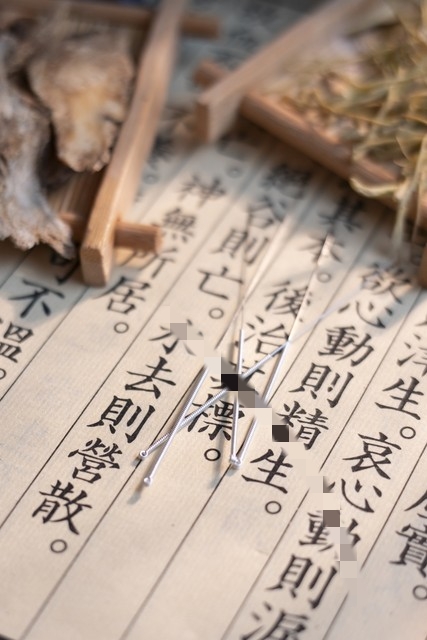 實。
津生。哀心動則淚
欲心動則精生。
其本。後治標。
絕谷則亡。水去則營散。
神無所居。
不
溫。